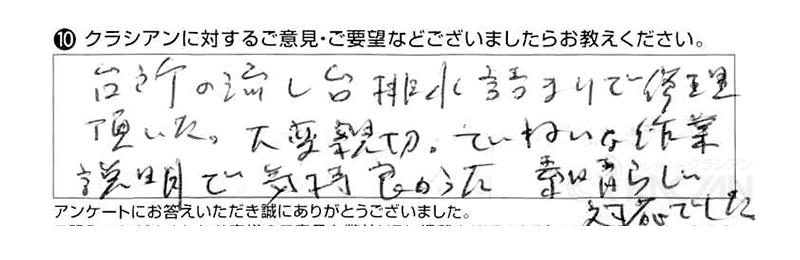 ⑩ クラシアンに対するご意見・ご要望などございましたらお教えください。
台所の流し台排水詰まりで修理
頂いた。大変親切。ていねいな作業
説明で気持良かった 素晴らしい
対応でした
アンケートにお答えいただき誠にありがとうございました。